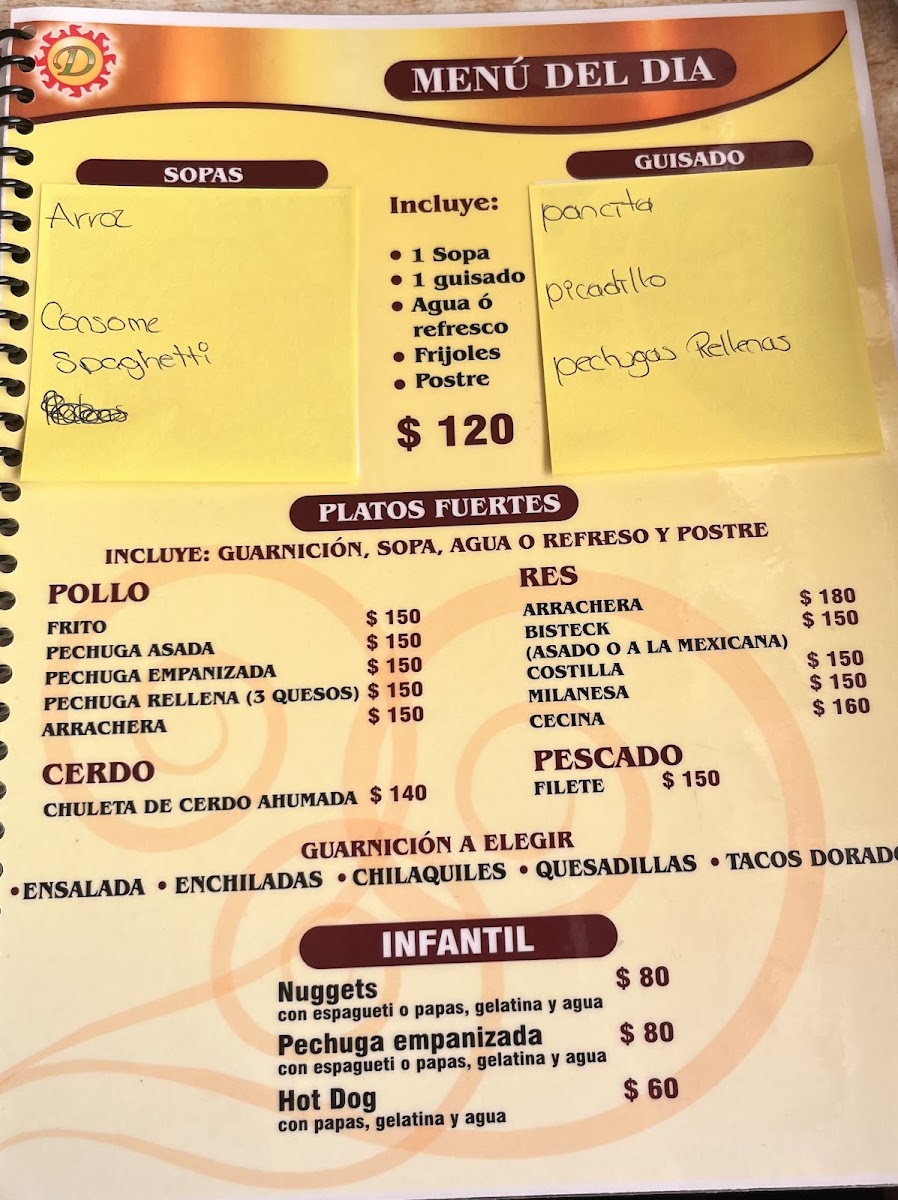 D
MENÚ DEL DIA
SOPAS
Arroz
Consome
Spaghetti
Incluye:
• 1 Sopa
• 1 guisado
• Agua ó
refresco
• Frijoles
• Postre
$ 120
GUISADO
pancita
picadillo
pechugas Rellenas
PLATOS FUERTES
INCLUYE: GUARNICIÓN, SOPA, AGUA O REFRESO Y POSTRE
POLLO
FRITO $ 150
PECHUGA ASADA $ 150
PECHUGA EMPANIZADA $ 150
PECHUGA RELLENA (3 QUESOS) $ 150
ARRACHERA $ 150
CERDO
CHULETA DE CERDO AHUMADA $ 140
RES
ARRACHERA $ 180
BISTECK $ 150
(ASADO O A LA MEXICANA)
COSTILLA $ 150
MILANESA $ 150
CECINA $ 160
PESCADO
FILETE $ 150
GUARNICIÓN A ELEGIR
•ENSALADA • ENCHILADAS • CHILAQUILES • QUESADILLAS • TACOS DORADO
INFANTIL
Nuggets $ 80
con espagueti o papas, gelatina y agua
Pechuga empanizada $ 80
con espagueti o papas, gelatina y agua
Hot Dog $ 60
con papas, gelatina y agua